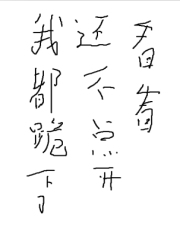 我都跪下
还不点开
看看